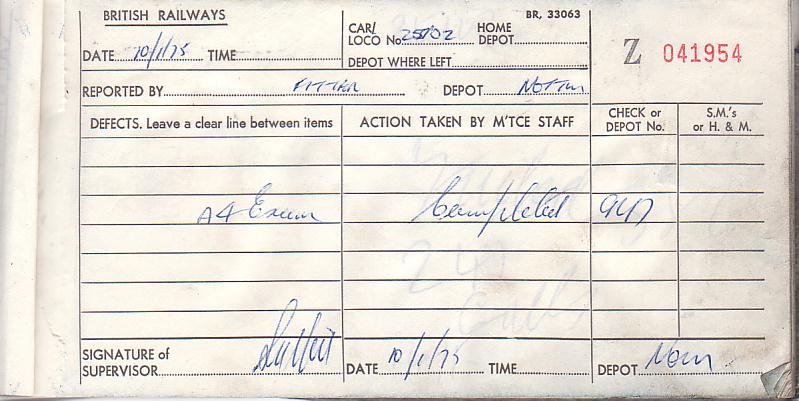 BRITISH RAILWAYS
BR, 33063
CAR/ LOCO No. HOME DEPOT
DATE 10/1/75 TIME
DEPOT WHERE LEFT
Z 041954
REPORTED BY FITTER DEPOT
DEFECTS. Leave a clear line between items
ACTION TAKEN BY M'TCE STAFF
CHECK or DEPOT No.
S.M.'s or H. & M.
A4 Exam Completed 947
SIGNATURE of SUPERVISOR
DATE 10/1/75 TIME
DEPOT